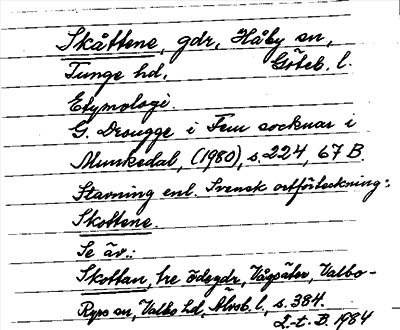 Skåttene, gdr, Håby sn,
Tunge hd, Göteb. l.
Etymologi
G. Drougge i Fem socknar i
Munkedal, (1980), s. 224, 67 B.
Stavning enl. Svensk ortförteckning:
Skottene.
Se äv.:
Skottan, tre ödegdr, Vågsäter, Valbo-
Ryrs sn, Valbo hd, Älvsb. l., s. 384.
L-t. B. 1984